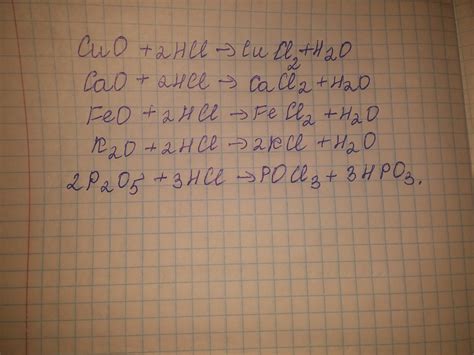 CuO + 2HCl → CuCl₂ + H₂O
CaO + 2HCl → CaCl₂ + H₂O
FeO + 2HCl → FeCl₂ + H₂O
K₂O + 2HCl → 2KCl + H₂O
2P₂O₅ + 3HCl → POCl₃ + 3HPO₃.